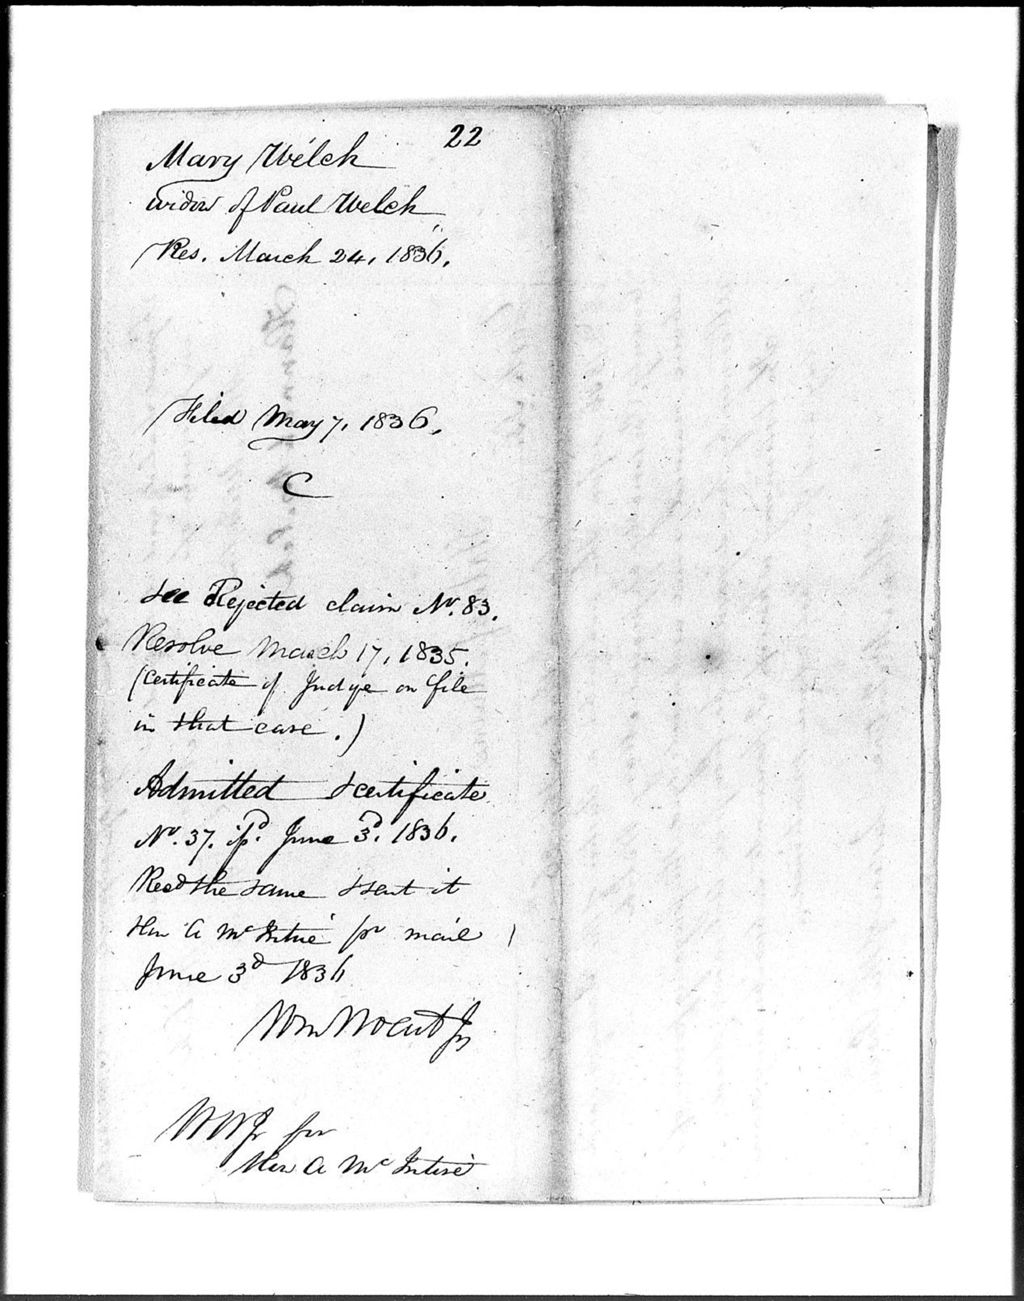 22
Mary Welch
widow of Paul Welch
Res. March 24, 1836.
Filed May 7, 1836.
C
see Rejected claim No. 83.
Resolve March 17, 1835.
(Certificate of Judge on file
in that case.)
Admitted & certificate
No. 37. isd. June 3d. 1836.
Recd the same & sent it
Hon A McIntire for mail
June 3d 1836
Wm Jr
WWJr for
Hon A McIntire